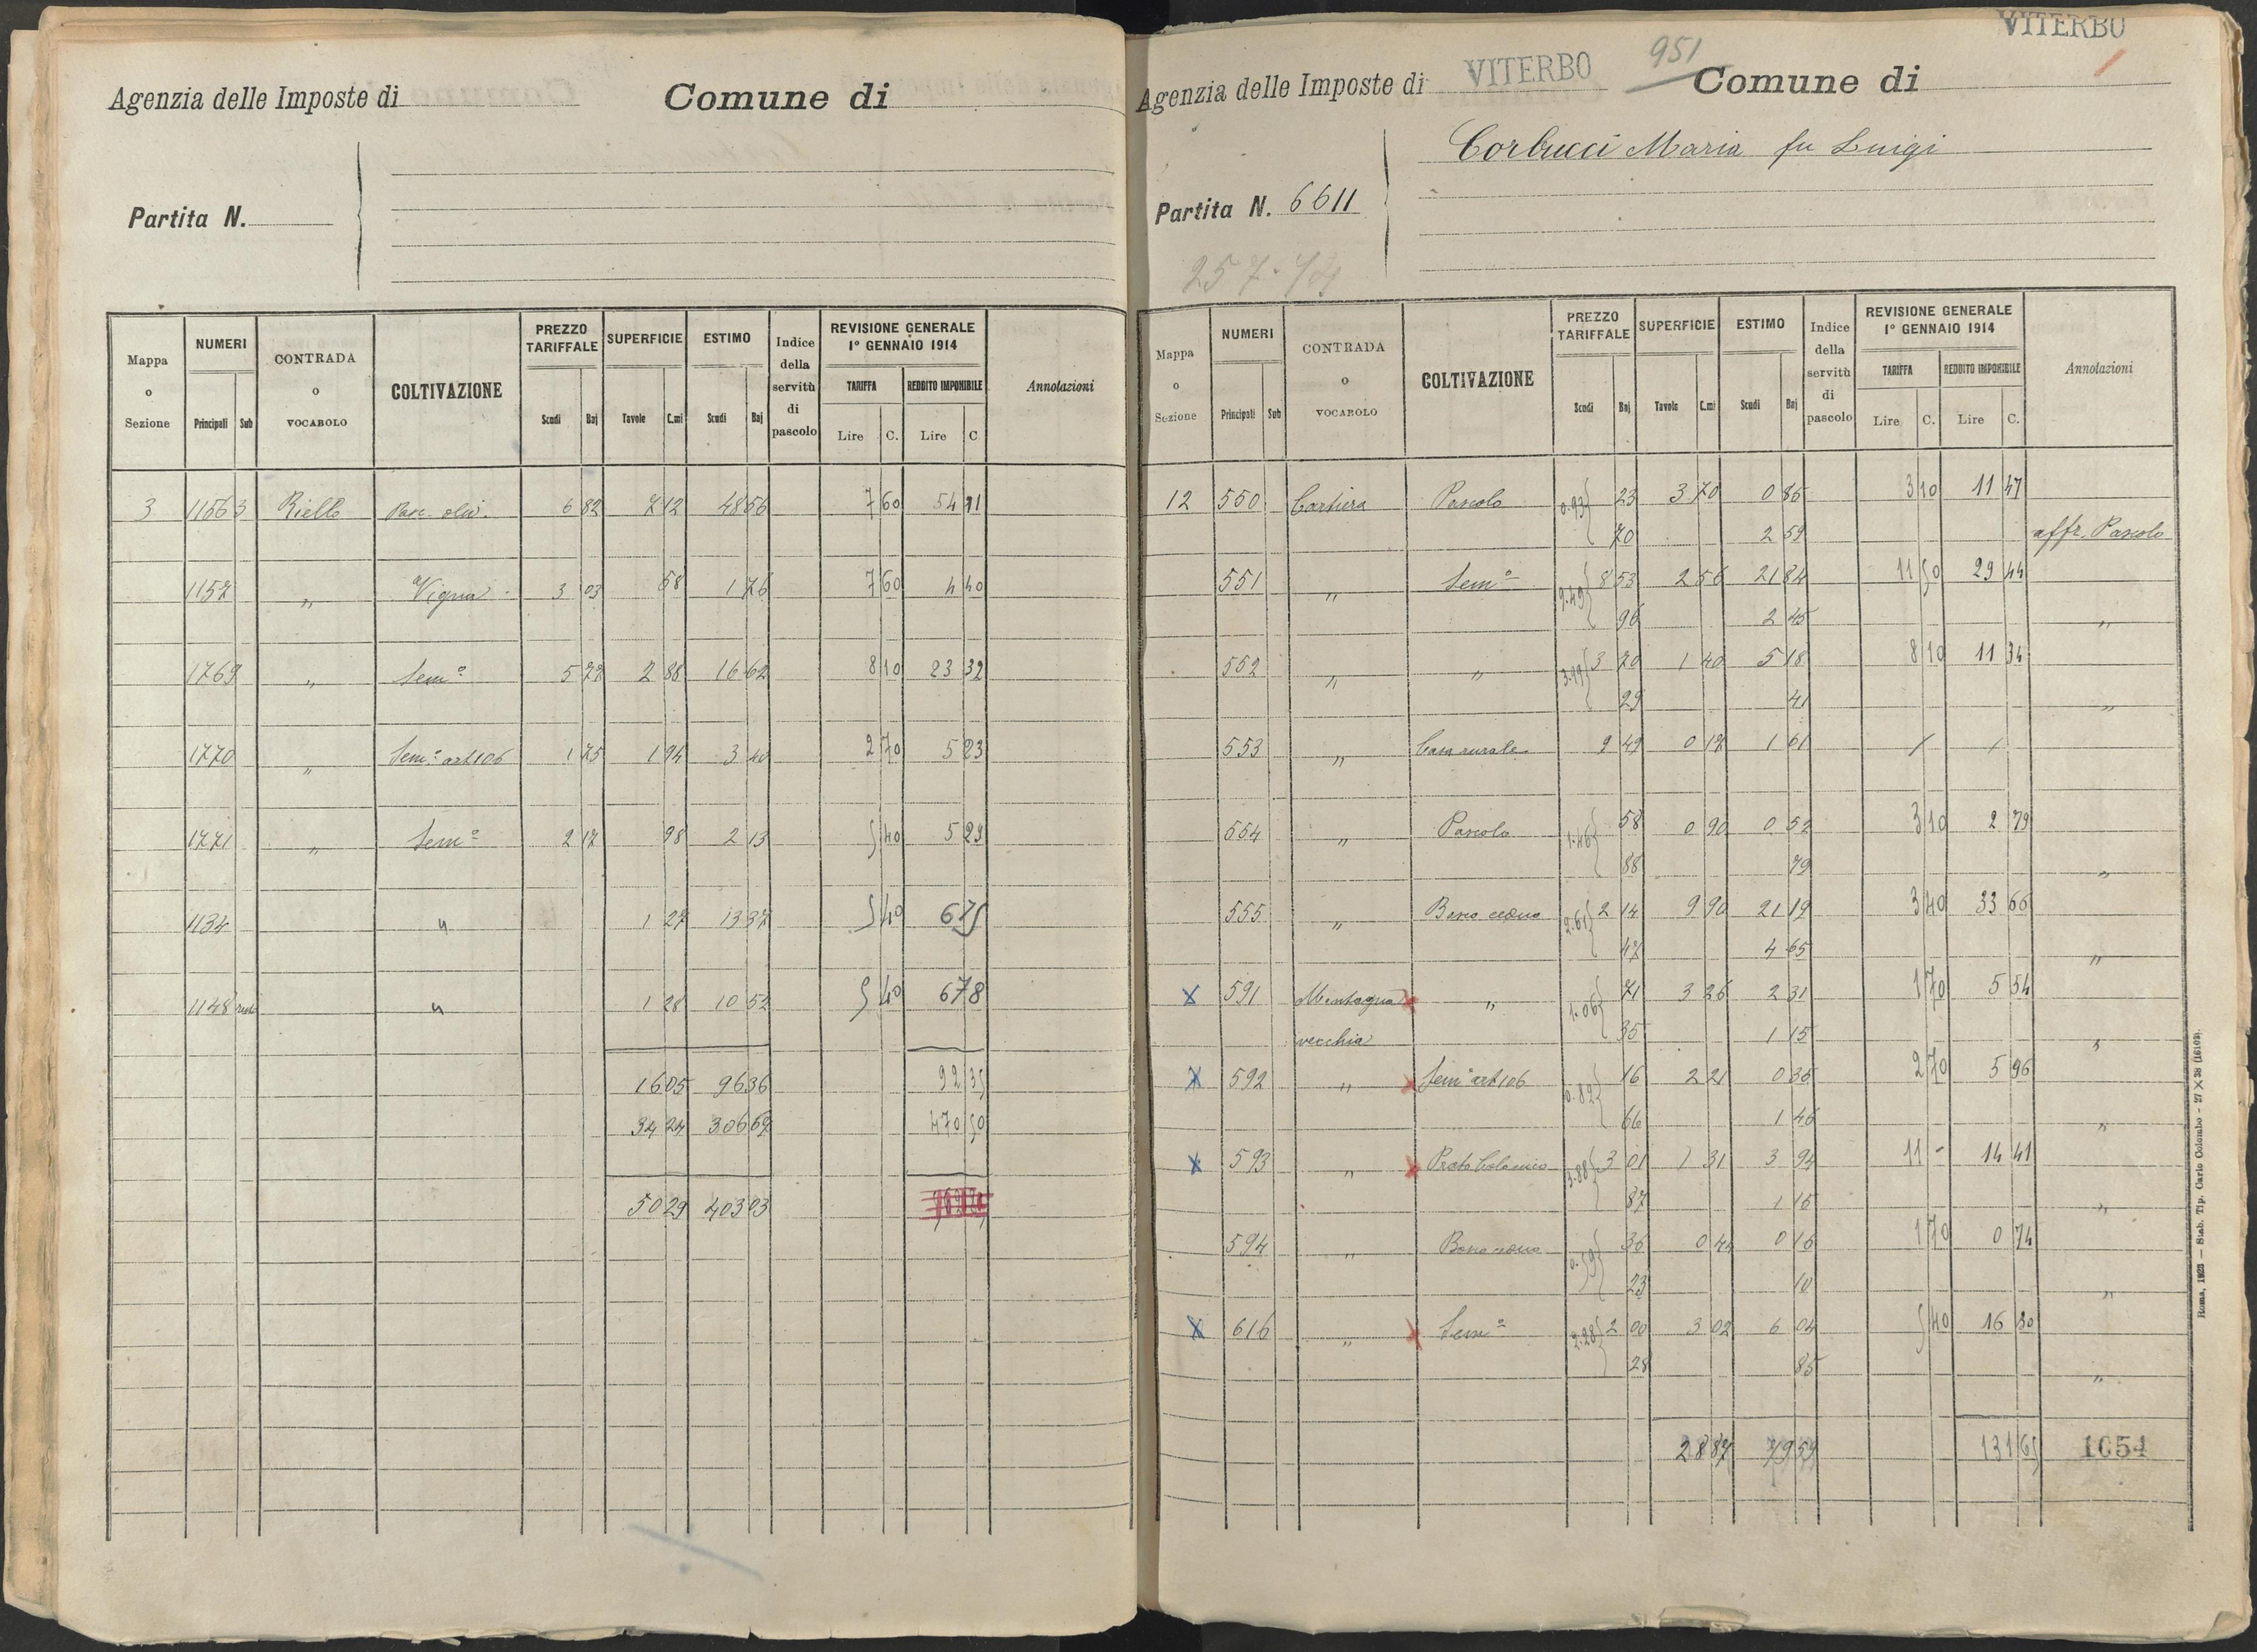 Agenzia delle Imposte di Comune di
Partita N.
Mappa o Sezione NUMERI Principali Sub CONTRADA o VOCABOLO COLTIVAZIONE PREZZO TARIFFALE Scudi Baj SUPERFICIE Tavole C.mi ESTIMO Scudi Baj Indice della servitù di pascolo REVISIONE GENERALE 1° GENNAIO 1914 TARIFFA Lire C. REDDITO IMPONIBILE Lire C Annotazioni
3 1156 3 Riello Pasc. oliv. 6 82 7 12 48 56 7 60 54 11
1152 " Vigna 3 03 58 1 76 7 60 4 40
1769 " Sem° 5 78 2 88 16 62 8 10 23 32
1770 " Sem° art 106 1 75 1 94 3 40 2 70 5 23
1771 " Sem° 2 17 98 2 13 5 40 5 29
1134 " 1 27 13 37 5 40 6 75
1148 " 1 28 10 52 5 40 6 78
16 05 96 36 92 35
34 24 306 67 470 50
50 29 403 03
VITERBO
Agenzia delle Imposte di VITERBO 951 Comune di
Corbucci Maria fu Luigi
Partita N. 6611
Mappa o Sezione NUMERI Principali Sub CONTRADA o VOCABOLO COLTIVAZIONE PREZZO TARIFFALE Scudi Baj SUPERFICIE Tavole C.mi ESTIMO Scudi Baj Indice della servitù di pascolo REVISIONE GENERALE 1° GENNAIO 1914 TARIFFA Lire C. REDDITO IMPONIBILE Lire C. Annotazioni
12 550 Cartiera Pascolo 0.93 23 3 70 0 85 3 10 11 47
70 2 59 affr. Pascolo
551 " Sem° 9.49 8 53 2 56 21 84 11 50 29 44
96 2 45 "
552 " " 3.99 3 70 1 40 5 18 8 10 11 34
29 41 "
553 " Casa rurale 9 49 0 17 1 61 / /
554 " Pascolo 1.46 58 0 90 0 52 3 10 2 79
88 79 "
555 " Bosco ceduo 2.61 2 14 9 90 21 19 3 40 33 66
47 4 65 "
X 591 Montagna " 1.06 71 3 26 2 31 1 70 5 54
vecchia 35 1 15 "
X 592 " Sem° art 106 0.82 16 2 21 0 35 2 70 5 96
66 1 46 "
X 593 " Prato 3.88 3 01 1 31 3 94 11 - 14 41
87 1 15 "
594 " Bosco ceduo 0.59 36 0 44 0 16 1 70 0 74
23 10 "
X 616 " Sem° 2.28 2 00 3 02 6 04 5 40 16 30
28 85 "
28 87 79 59 131 65 1054
Roma, 1923 — Stab. Tip. Carlo Colombo - 27 X 38 (16103).